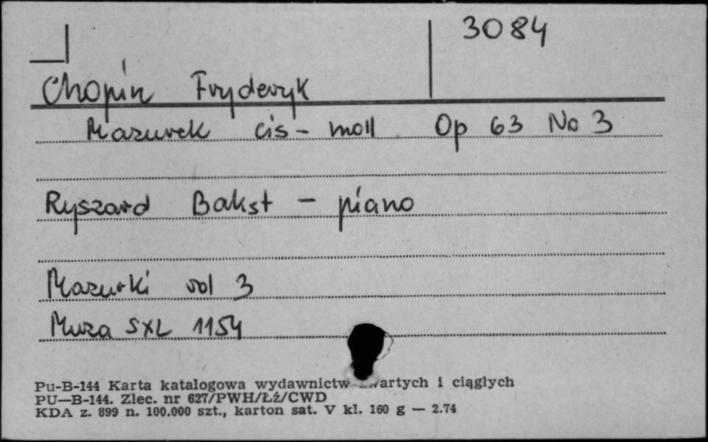 3084
Chopin Fryderyk
Mazurek cis-moll Op 63 No 3
Ryszard Bakst - piano
Mazurki vol 3
Muza SXL 1154
Pu-B-144 Karta katalogowa wydawnictw i ciągłych
PU—B-144. Zlec. nr 627/PWH/ŁŻ/CWD
KDA z. 899 n. 100.000 szt., karton sat. V kl. 160 g — 2.74